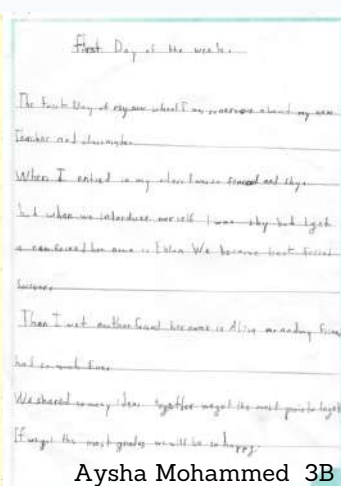 First Day of the week.
The first Day of my new school I was nervous about my new
Teacher and classmates
When I entred in my class I was scared and shy.
but when we introduse myself I was shy but I got
a new friend her name is Eblan We became best friend
forever.
Then I met another friend her name is me and my friend
had so much fun.
We shared so many ideas together we got the most points
If we get the most grades we will be so happy
Aysha Mohammed 3B